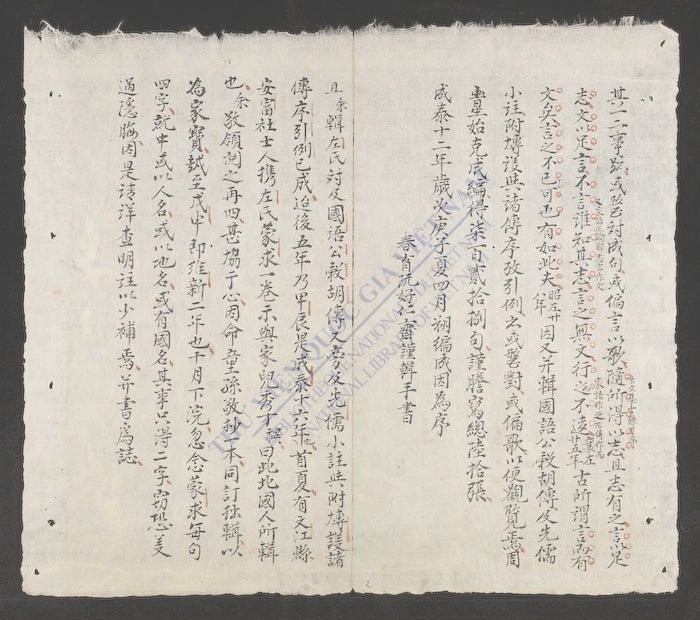 其一二事跡或駢對成句或偏言以歌隨所得以志且志有之言以足
志文以足言不言誰知其志言之無文行之不遠古所謂言而有
文矣言之不已可也有如此夫因又并輯國語公穀胡傳及先儒
小註附摶議與諸傳序攷引例亦或駢對或偏歌以便觀覽焉周
星始克成編得柒百貳拾捌句謹謄寫總陸拾張
成泰十二年歲次庚子夏四月朔編成因為序
春育阮好仁齋謹輯手書
且余輯左氏対及國語公穀胡傳又旁及先儒小註與附摶議諸
傳序引例已成迨後五年乃甲辰是成泰十六年首夏有文江縣
安富社士人携左氏蒙求一卷示與家兒秀才撰曰此北國人所輯
也余敬領閱之再四甚協于心因命童孫敬抄一本同訂拙輯以
為家寶越至戊申即維新二年也十月下浣忽念蒙求每句
四字就中或以人名或以地名或有國名其事只得二字窃恐差
過隱晦因是請詳查明註以少補焉并書為誌